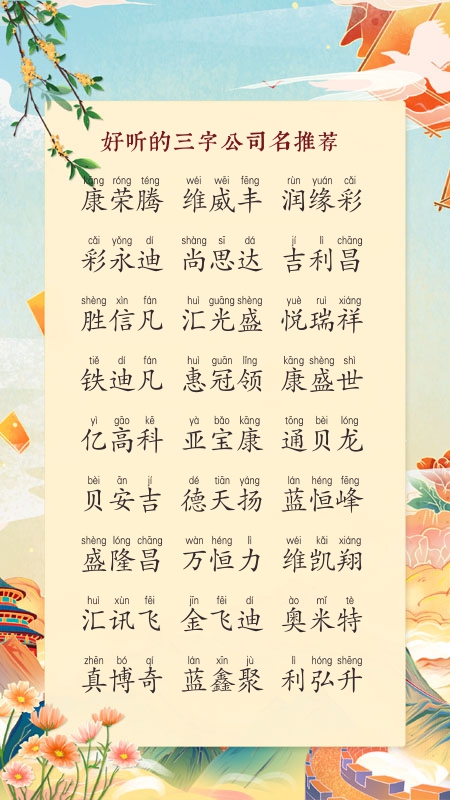 好听的三字公司名推荐
kāng róng téng wéi wēi fēng rùn yuán cǎi
康荣腾 维威丰 润缘彩
cǎi yǒng dí shàng sī dá jí lì chāng
彩永迪 尚思达 吉利昌
shèng xìn fán huì guāng shèng yuè ruì xiáng
胜信凡 汇光盛 悦瑞祥
tiě dí fán huì guān lǐng kāng shèng shì
铁迪凡 惠冠领 康盛世
yì gāo kē yà bǎo kāng tōng bèi lóng
亿高科 亚宝康 通贝龙
bèi ān jí dé tiān yáng lán héng fēng
贝安吉 德天扬 蓝恒峰
shèng lóng chāng wàn héng lì wéi kǎi xiáng
盛隆昌 万恒力 维凯翔
huì xùn fēi jīn fēi dí ào mǐ tè
汇讯飞 金飞迪 奥米特
zhēn bó qí lán xīn jù lì hóng shēng
真博奇 蓝鑫聚 利弘升